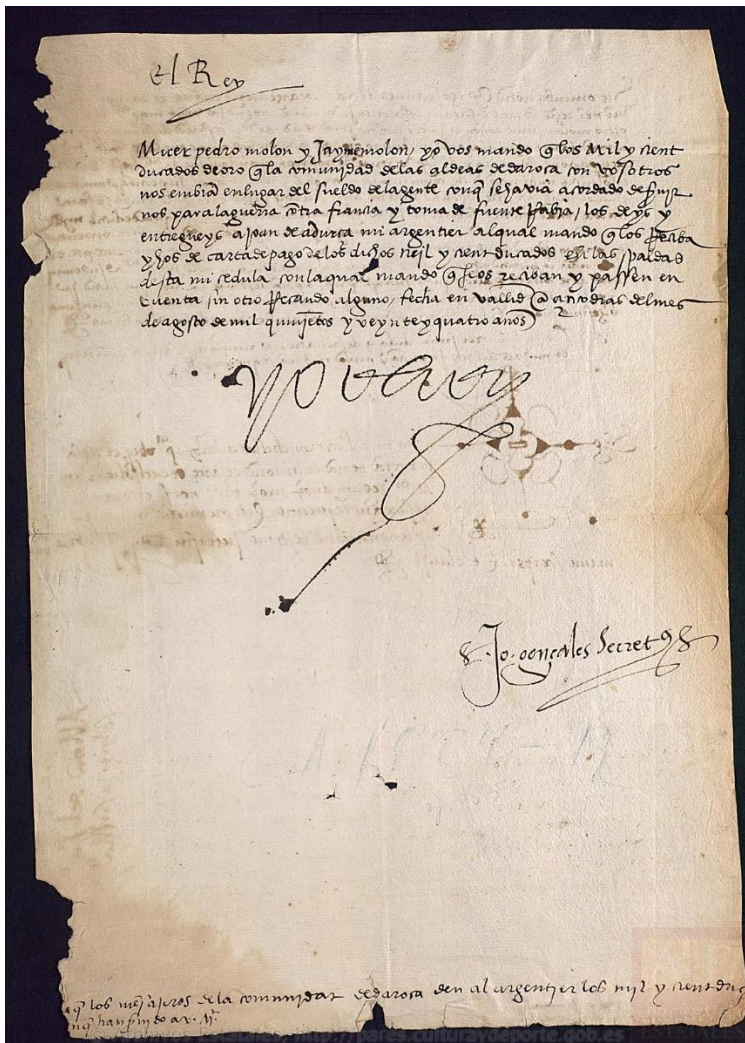 El Rey
Micer pedro molon y Jayme molon, yo vos mando q̃ los Mil y cient
ducados de oro q̃ la comunidad de las aldeas de daroca con vosotros
nos embia en lugar del sueldo de la gente conq̃ se havia acordado de
nos para la guerra cõtra francia y toma de fuente Rabia, los deys y
entregueys a Joan de adurca mi argentier al qual mando q̃ los Reciba
y hos de carta de pago de los dichos Mil y cient ducados en las spaldas
desta mi cedula con la qual mando q̃ se os reciban y passen en
cuenta sin otro Recaudo alguno, fecha en vallid a cinco dias del mes
de agosto de mil quiniẽtos y veynte y quatro años
yo el Rey
Jo. gonçales Secret
q̃ los mẽsajeros de la comunidat de daroca den al argentier los mil y cient duc